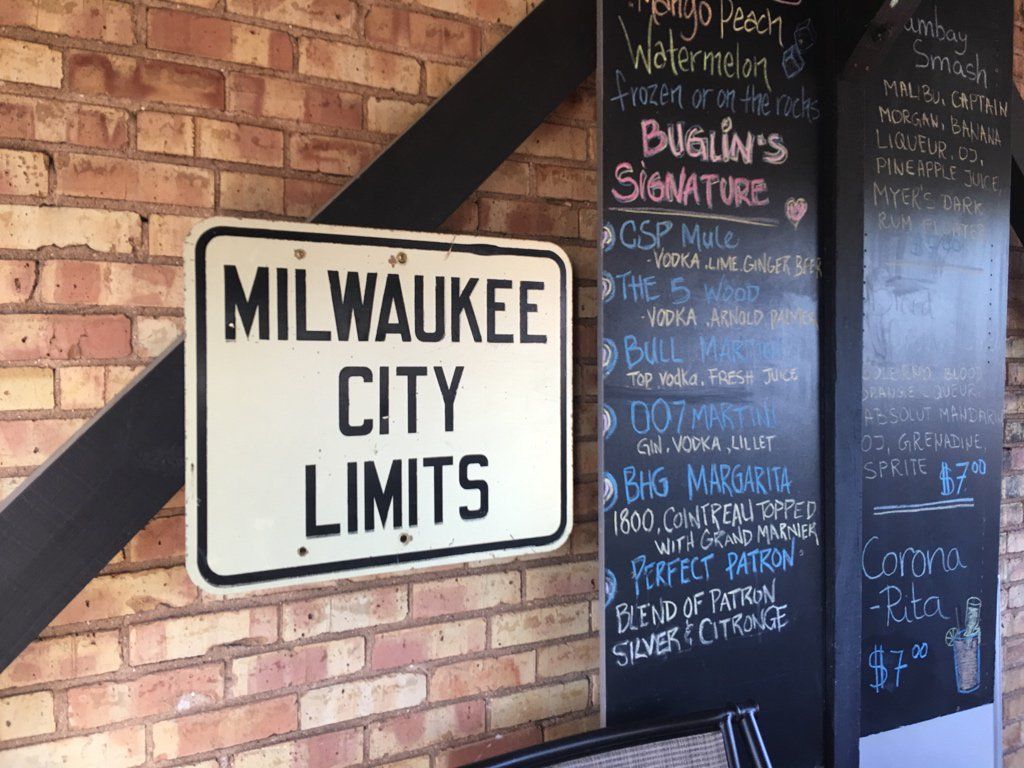 MILWAUKEE
CITY
LIMITS
Mango Peach
Watermelon
frozen or on the rocks
BUGLIN'S
SIGNATURE
CSP Mule
-VODKA, LIME, GINGER BEER
THE 5 WOOD
-VODKA, ARNOLD PALMER
BULL MARTINI
TOP VODKA, FRESH JUICE
007 MARTINI
GIN, VODKA, LILLET
BHG MARGARITA
1800, COINTREAU TOPPED
WITH GRAND MARNIER
PERFECT PATRON
BLEND OF PATRON
SILVER & CITRONGE
ambay
Smash
MALIBU, CAPTAIN
MORGAN, BANANA
LIQUEUR, OJ,
PINEAPPLE JUICE
MYER'S DARK
RUM FLOATER
BLOOD
ORANGE LIQUEUR,
ABSOLUT MANDARIN
OJ, GRENADINE,
SPRITE $7.00
Corona
-Rita
$7.00